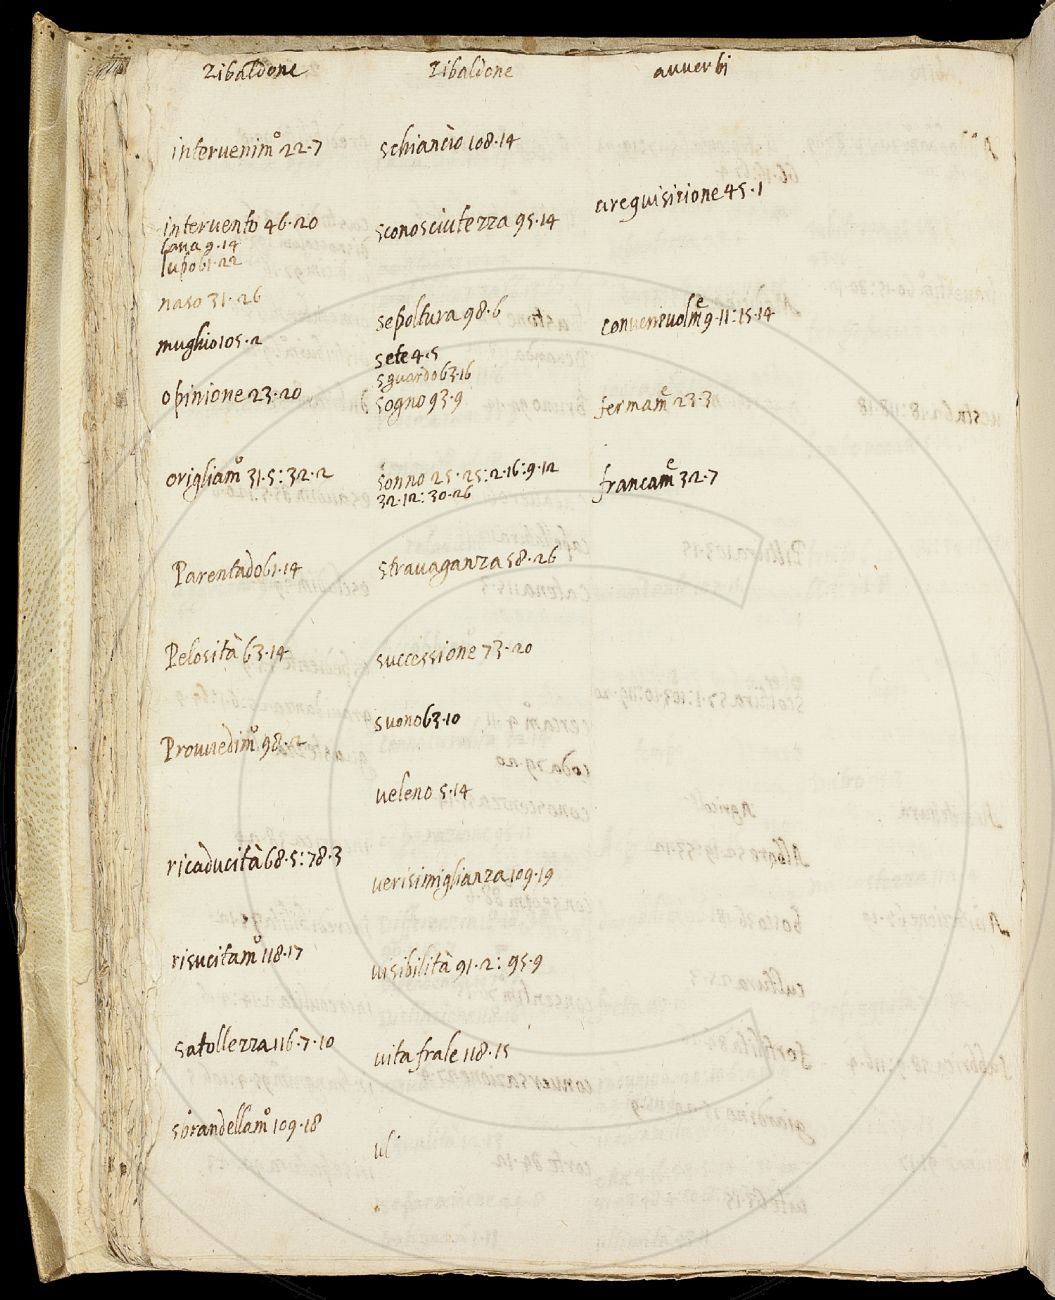 Zibaldone
intervenimº 22·7
intervento 46·20
lana 9·14
lupo 61·22
naso 31·26
mughio 105·2
opinione 23·20
origliamº 31·5:32·2
Parentado 61·14
Pelosità 63·14
Prouuedimº 98·2
ricaducità 68·5:78·3
risucitamº 118·17
satollezza 116·7·10
sbrandellamº 109·18
Zibaldone
schiancio 108·14
sconosciutezza 95·14
sepoltura 98·6
sete 4·5
sguardo 63·16
sogno 93·9
sonno 25·25:2·16:9·12
32·12:30·26
strauaganza 58·26
successione 73·20
suono 63·10
ueleno 5·14
uerisimiglianza 109·19
uisibilità 91·2:95·9
uita frale 118·15
ul
auuerbi
a requisizione 45·1
conueneuolmᵉ 9·11:15·14
fermamᵉ 23·3
francamᵉ 32·7